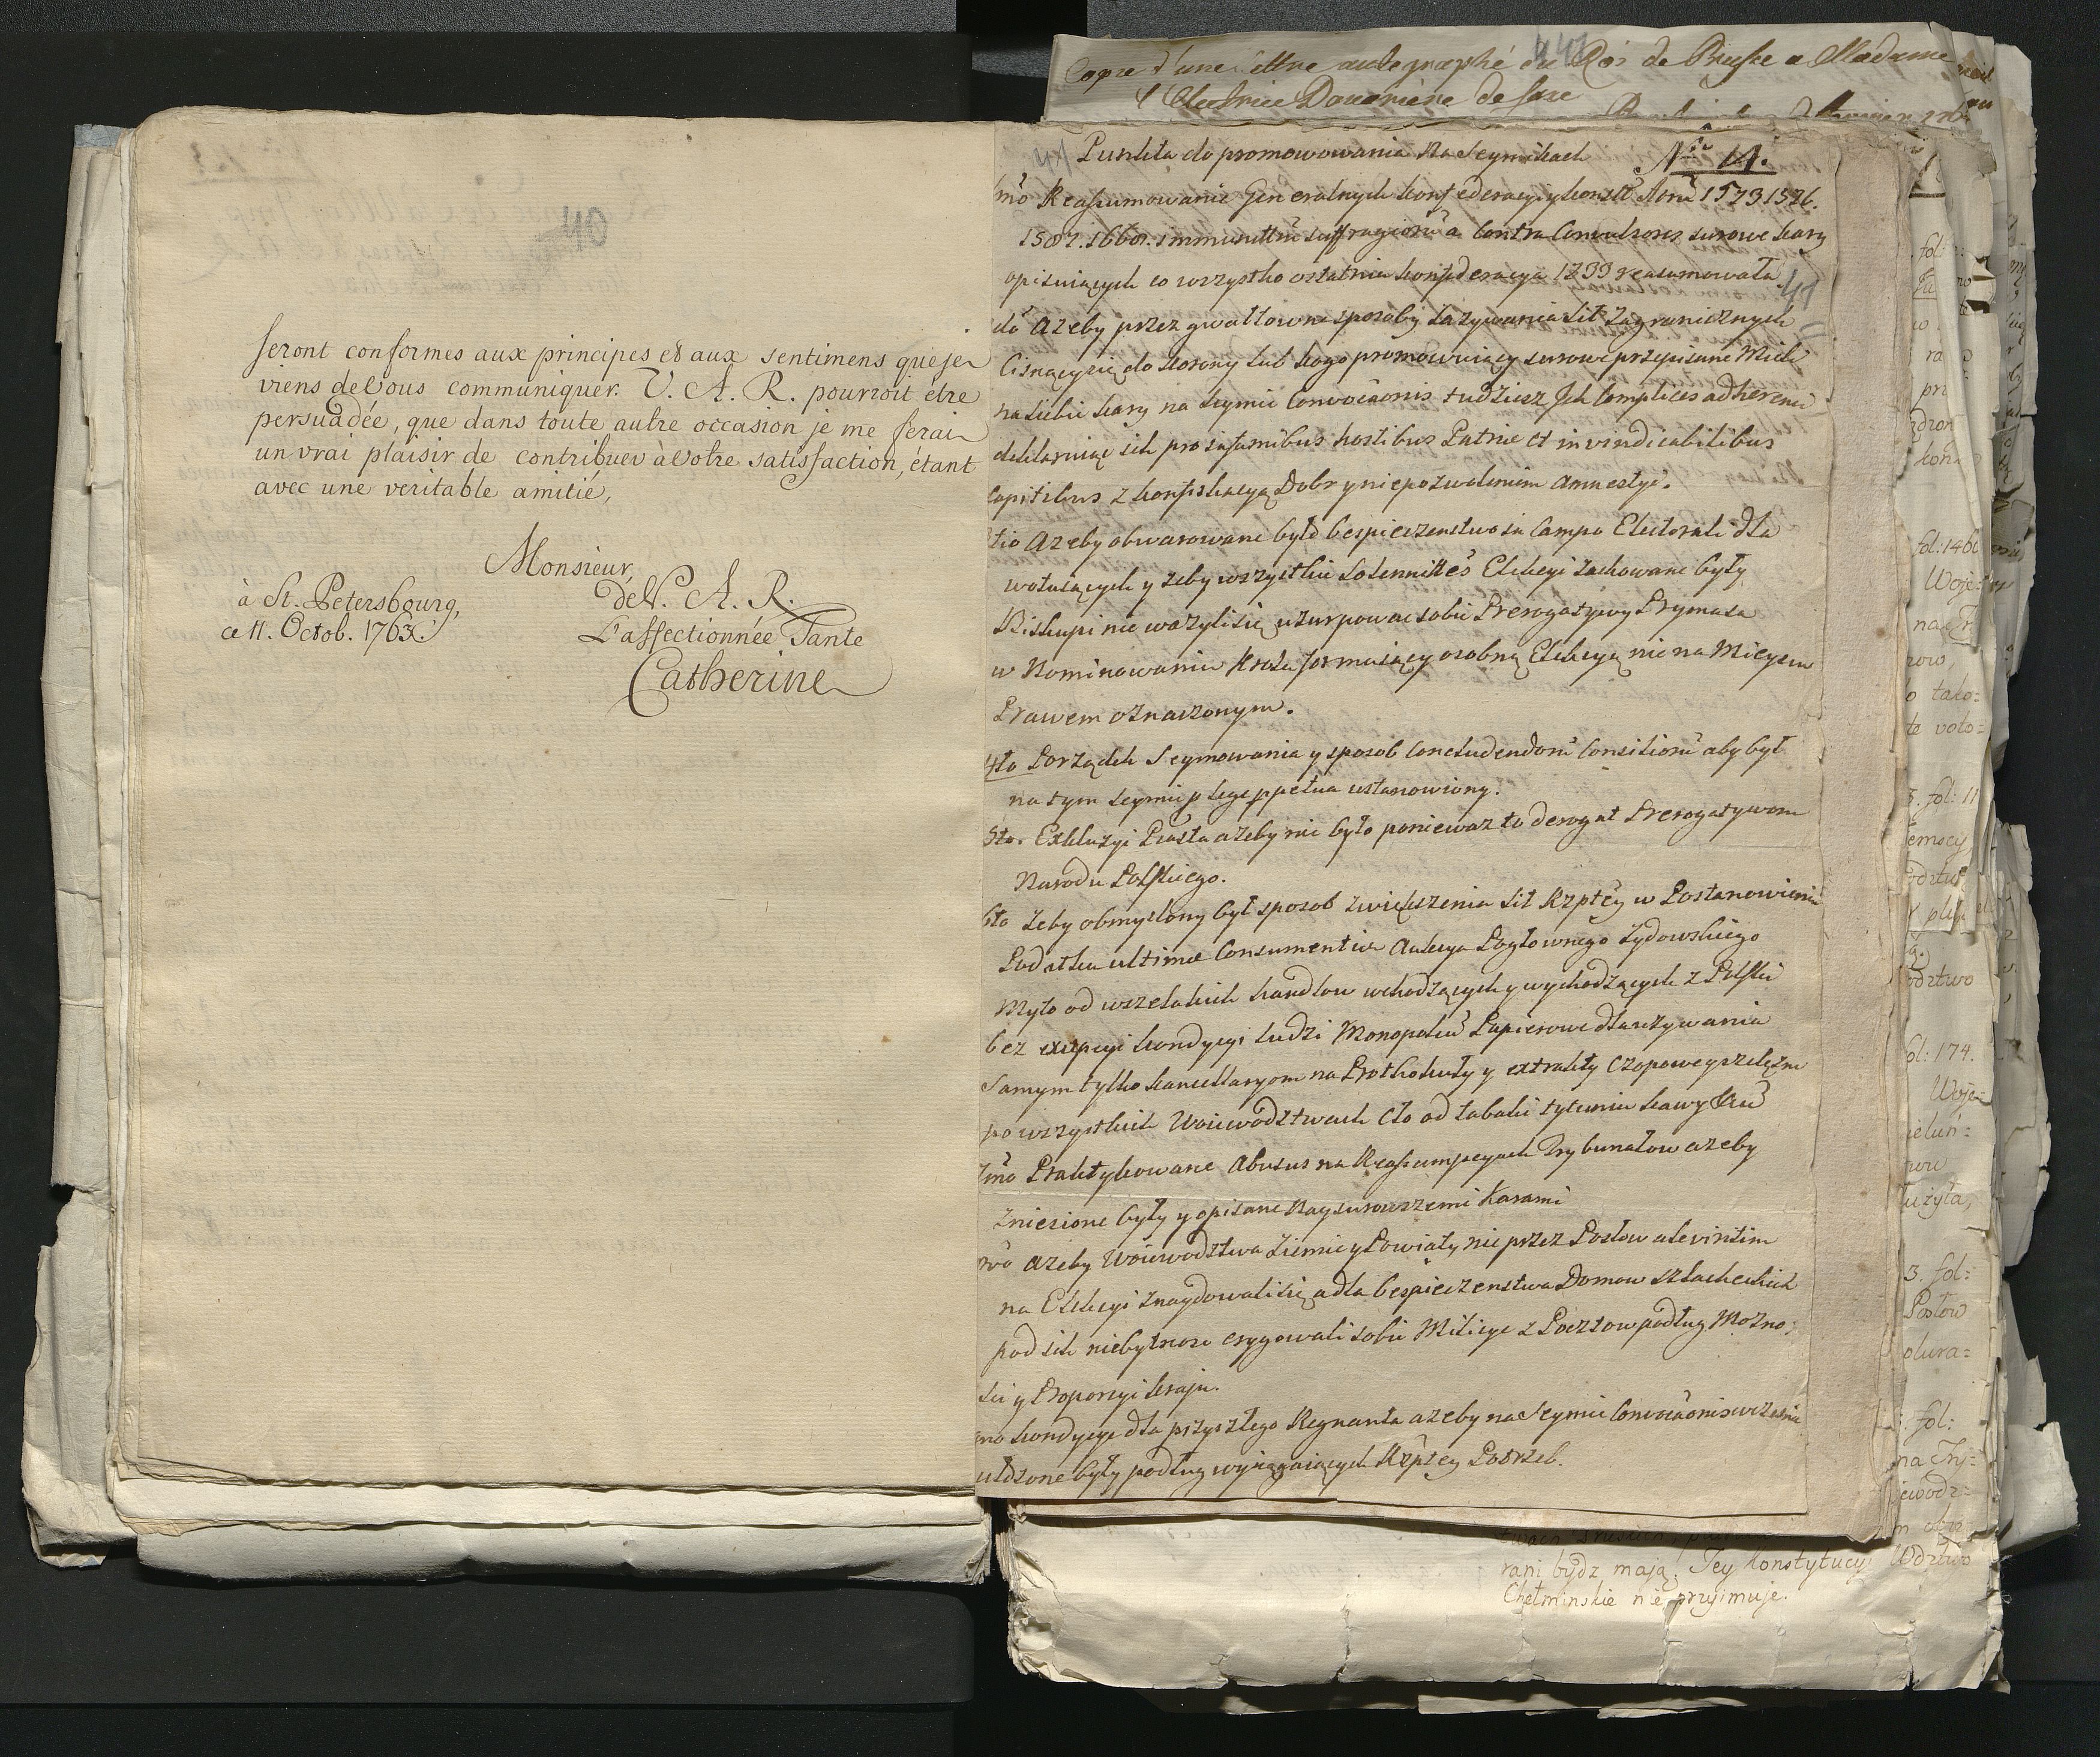 seront conformes aux principes et aux sentimens que je
viens de Vous communiquer. V. A. R. pourroit être
persuadée, que dans toute autre occasion je me ferai
un vrai plaisir de contribuer à Votre satisfaction, étant
avec une veritable amitié,
Monsieur,
de V. A. R.
à St. Petersbourg,
ce 11. Octob. 1763.
L'affectionnée Tante
Catherine
Copie d'une lettre autographé du Roi de Prusse a Madame
l'Electrice Douariere de Saxe
Punkta do promowowania na Seymikach No 14.
1mo Reassumowanie Generalnych konfederacyi y konstt Anni 1573 1576.
1587. 1668. immunittu suffragioru a Contra Convulsores surowe kary
opisuiących co wszystko ostatnia konfederacya 1733 reasumowała
2do Azeby przez gwałtowne sposoby zazywania sił Zagranicznych
Cisnący się do korony lub kogo promowuiący surowe przepisane mieli
na siebie kary na seymie Convocaonis tudziesz Ich Complices adherenci
deklaruiąc ich pro infamibus hostibus Patriæ et invindicabilibus
Capitibus z konfiskacyą Dobr y niepozwoleniem Amnestyi.
3tio Azeby obwarowane było bespieczenstwo in Campo Electorali dla
wotuiących y zeby wszystkie Solennittes Elekcyi zachowane były
Biskupi nie wazyli się uzurpować sobie Prerogatywy Prymasa
w Nominowaniu Krola formuiący osobną Elekcyą nie na Mieyscu
Prawem oznaczonym.
4to Porządek Seymowania y sposob Concludendoru Consilioru aby był
na tym Seymie p lege ppetua ustanowiony.
5to. Exkluzyi Piasta azeby nie było poniewaz to derogat Prerogatywom
Narodu Polskiego.
6to Zeby obmyslony był sposob zwiększenia sił Rzptey w Postanowieniu
Podatku ultimæ Consumentiæ Aukcya Pogłownego Zydowskiego
Myto od wszelakich handlow wchodzących y wychodzących z Polski
bez excepcyi kondycyi ludzi Monopoliu Papierowe dla uzywania
Samym tylko kancellaryom na Prothokuły y extrakty Czopowe y szelęzne
po wszystkich Woiewodztwach Cło od tabaki tytuniu kawy
7mo Praktykowane Abusus na Reassumpcyach Trybunałow azeby
zniesione były y opisane Naysurowszemi Karami
8vo Azeby Woiewodztwa Ziemie y Powiaty nie przez Posłow ale viritim
na Elekcyi znaydowali się a dla bespieczenstwa Domow szlacheckich
pod ich niebytnosc erygowali sobie Milicye z Pocztow podług Mozno:
sci y Proporcyi kraju.
9no kondycye dla przyszłego Regnanta azeby na Seymie Convocaonis wczesnie
ułozone były podług wyciągaiących Rzptey Potrzeb.
rani bydz mają. Tey konstytucyi Wdztwo
Chełminskie nie przyimuje.
fol: 1461
fol: 174.
3. fol:
Posłow